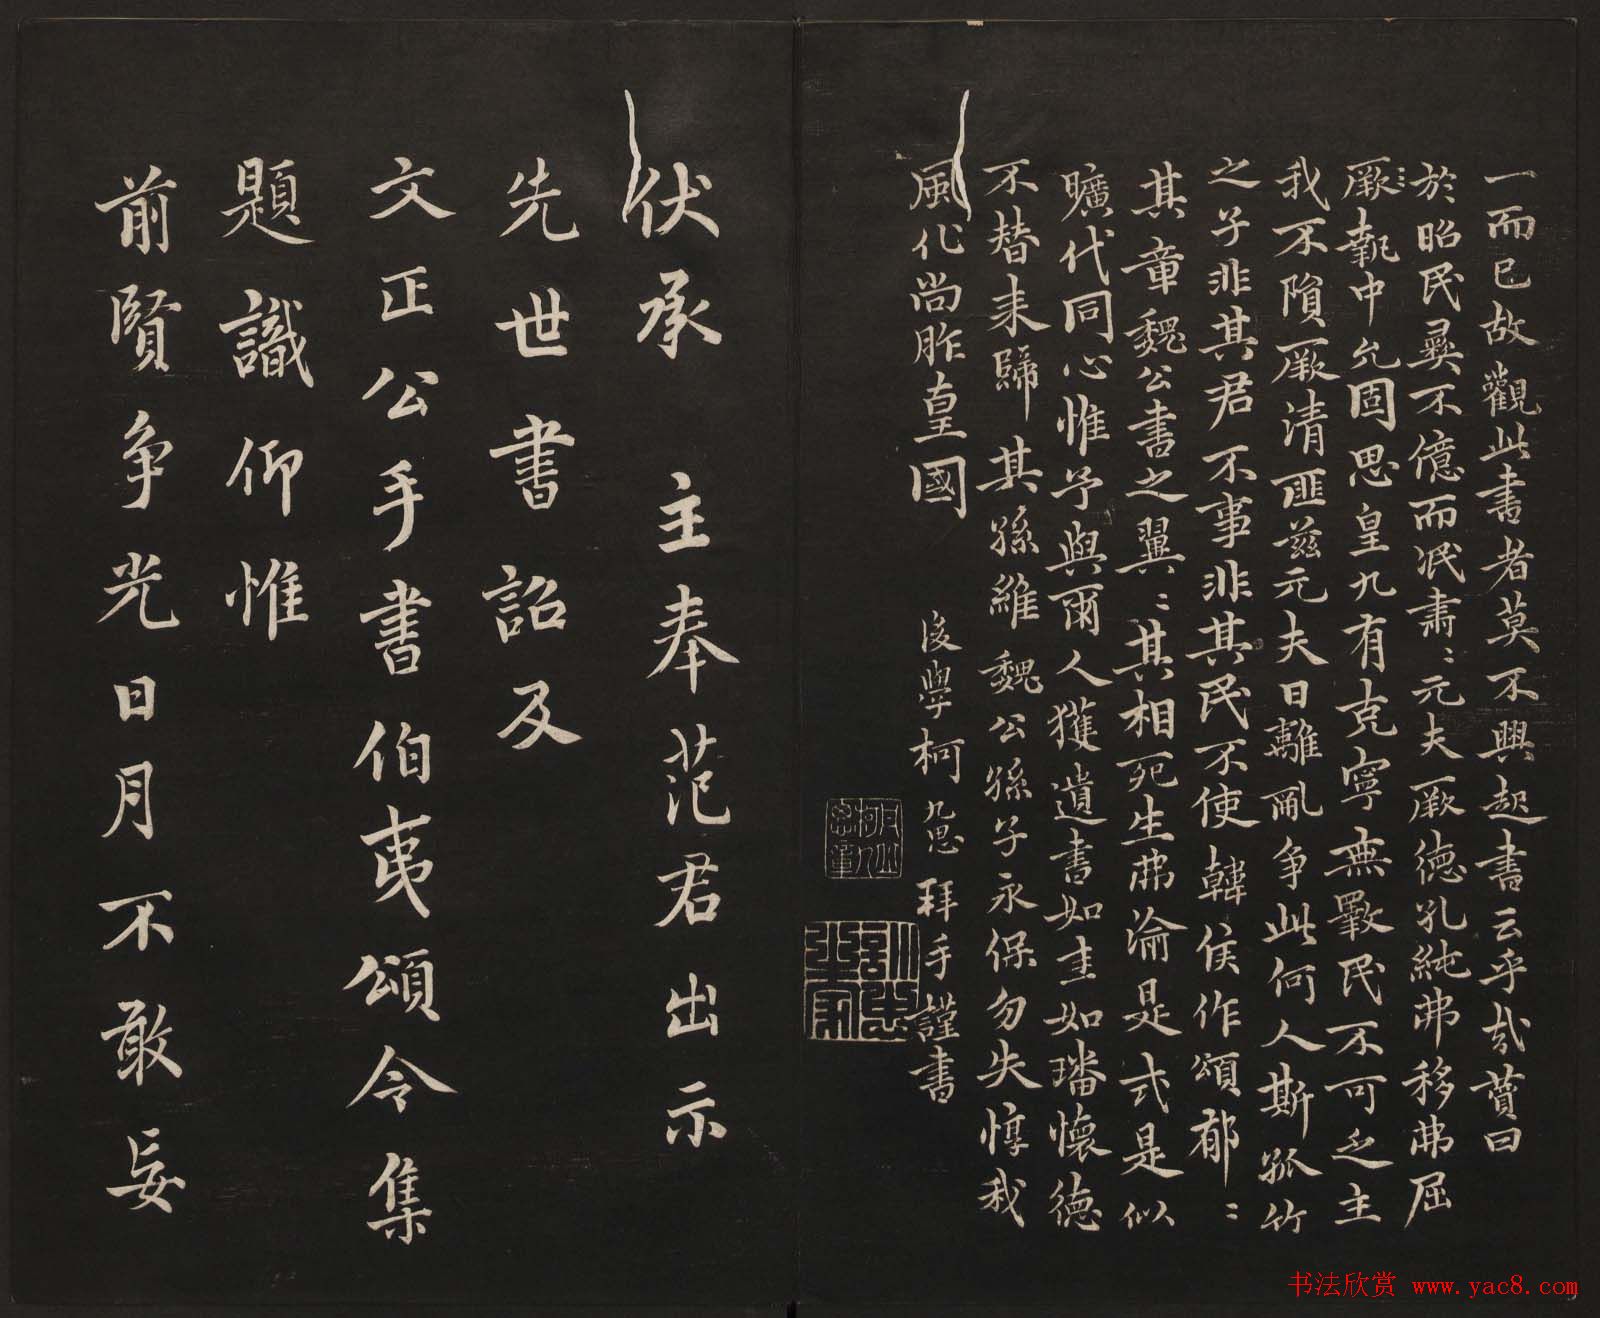 一而已故觀此書者莫不興起書云乎哉贊曰
於昭民彝不億而泯肅〻元夫厥德孔純弗移弗屈
厥執中允固思皇九有克寧無斁民不可乏主
我不隕厥清匪茲元夫日離亂爭此何人斯孤竹
之子非其君不事非其民不使韓侯作頌郁〻
其章魏公書之翼〻其相死生弗渝是式是似
曠代同心惟予與爾人獲遺書如圭如璠懷德
不替來歸其孫維魏公孫子永保勿失惇我
風化尚胙皇國
後學柯九思拜手謹書
訓忠之家
伏承 主奉范君出示
先世書詔及
文正公手書伯夷頌令集
題識仰惟
前賢爭光日月不敢妄
书法欣赏 www.yac8.com